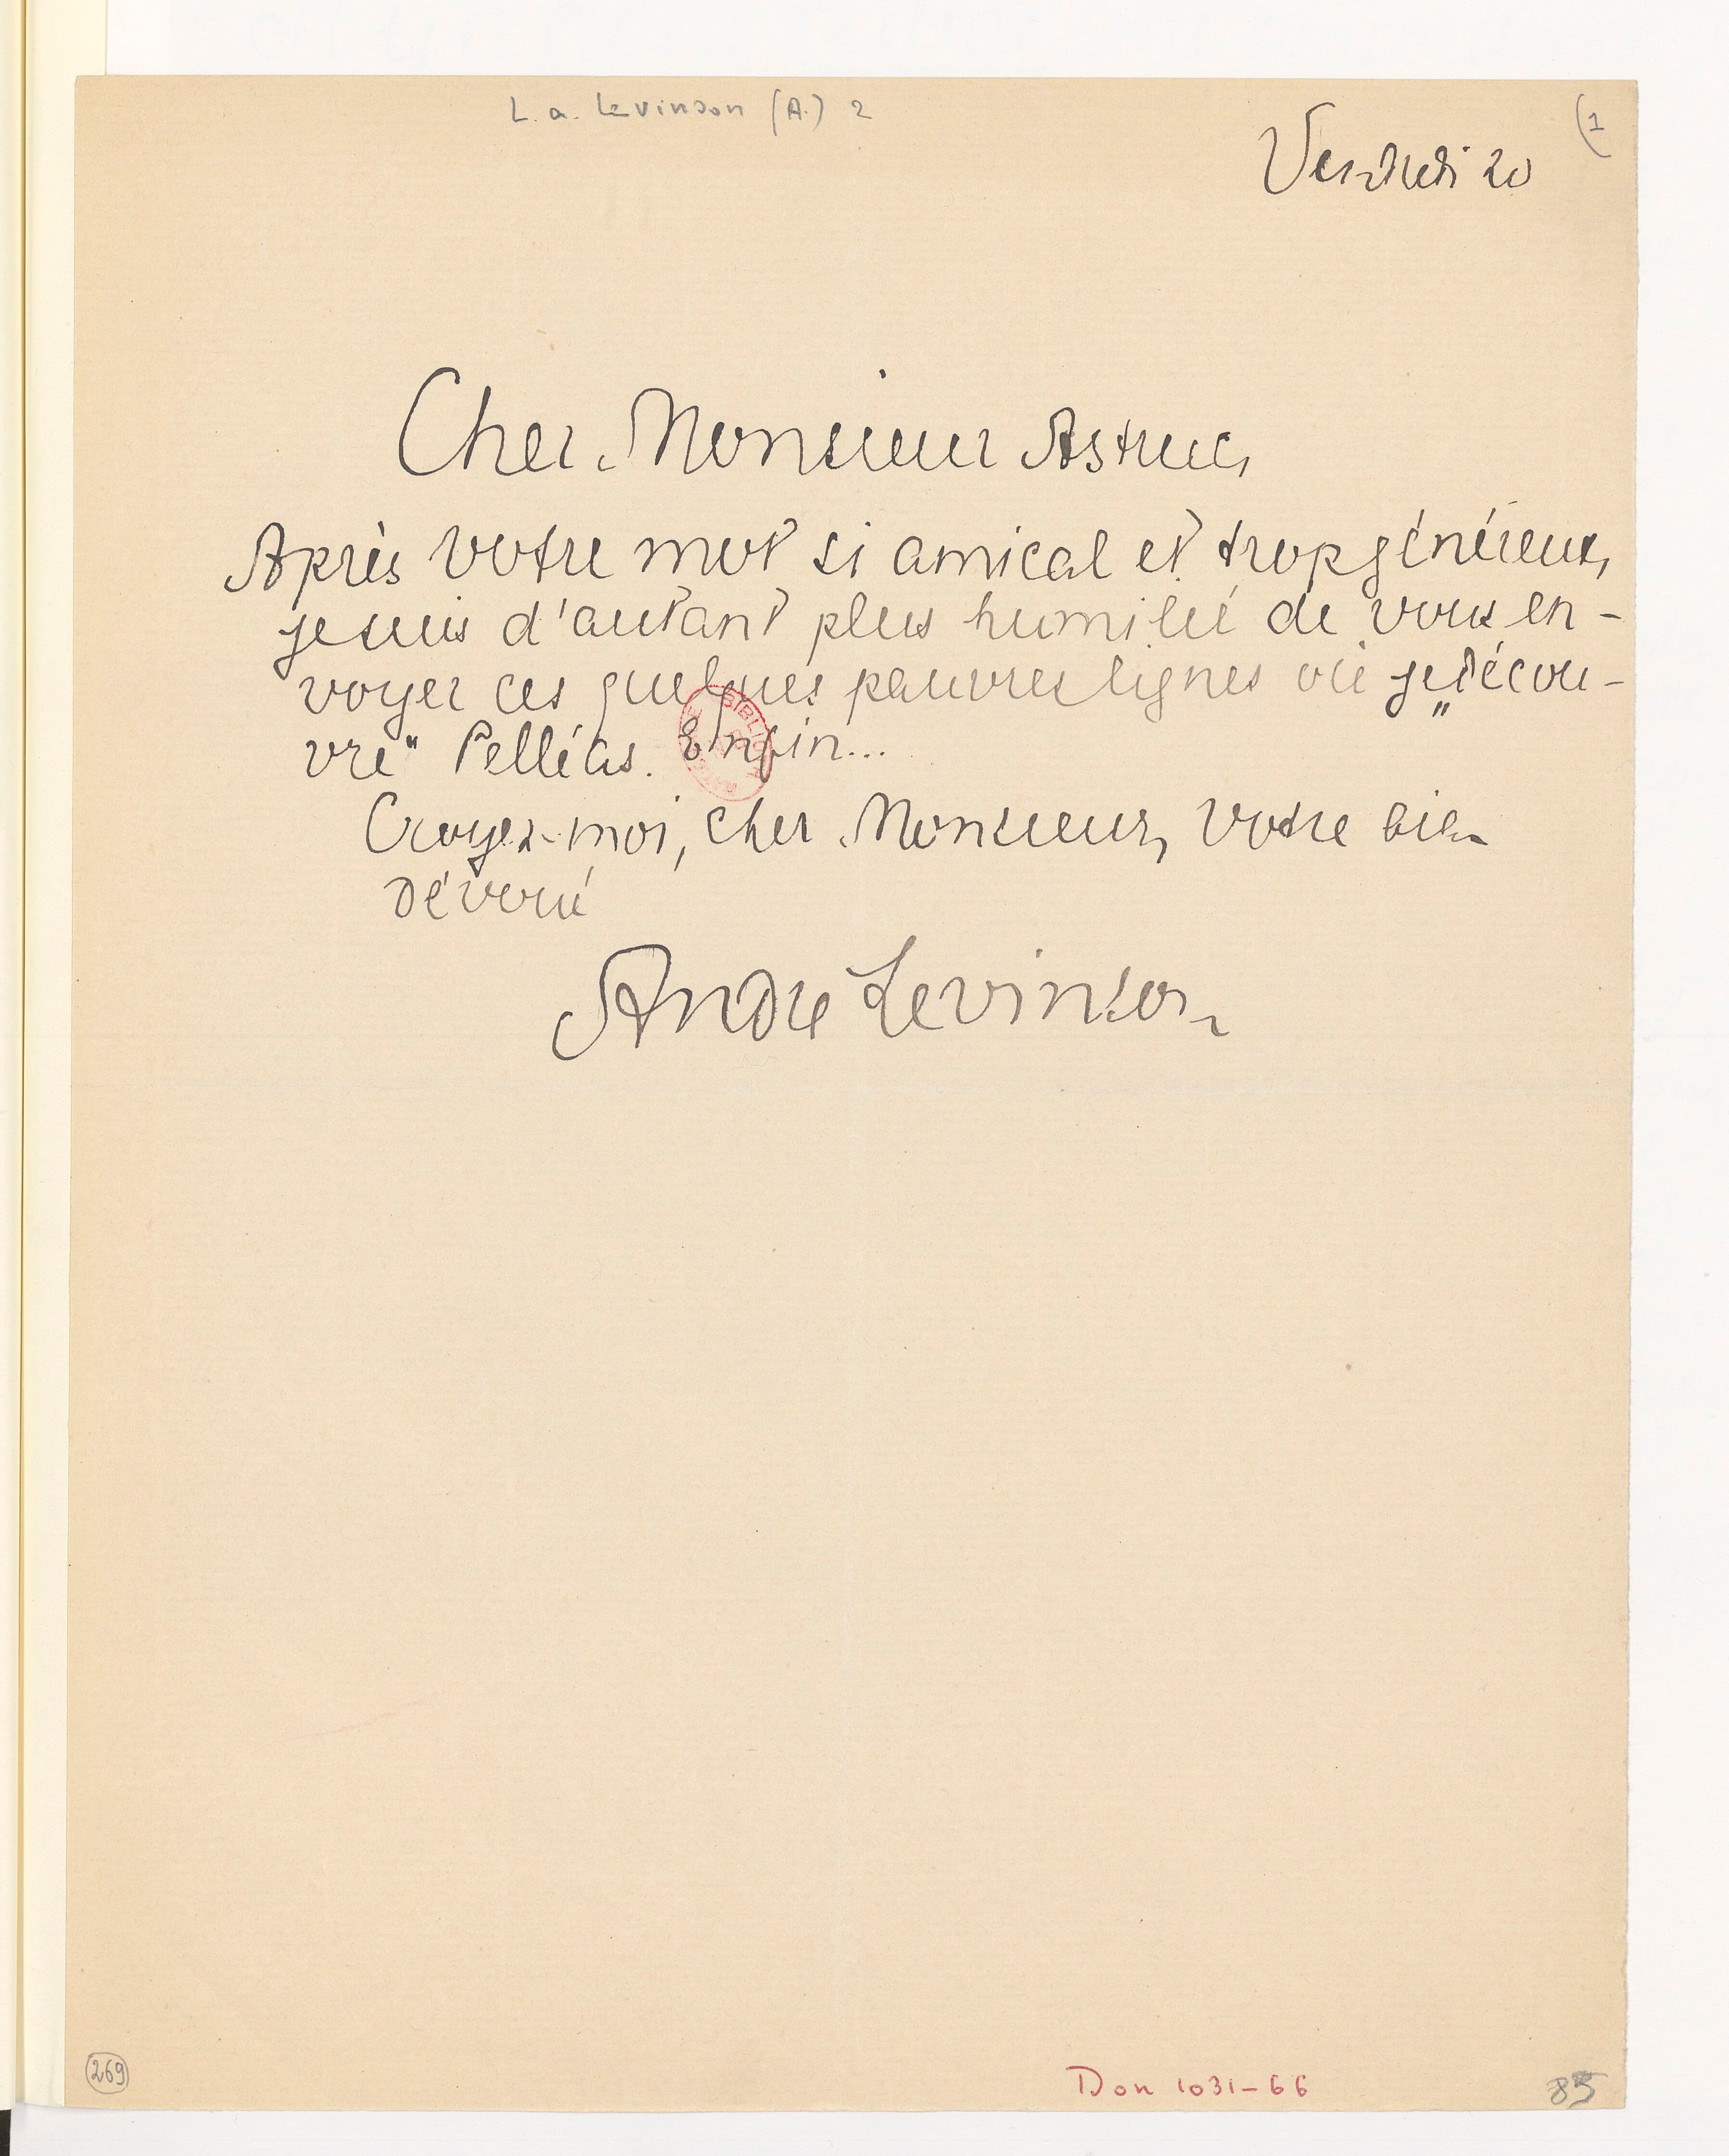 L. a. Levinson (A.) 2
(1
Vendredi 20
Cher Monsieur Astruc,
Après votre mot si amical et trop généreux,
je suis d'autant plus humilié de vous en-
voyer ces quelques pauvres lignes où je „décou-
vre" Pelléas. Enfin...
Croyez-moi, cher Monsieur, votre bien
dévoué
André Levinson
269
Don 1031-66
85